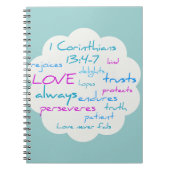 1 Corinthians
13:4-7 kind
rejoices delights
LOVE hopes trusts
always protects
endures
perseveres truth
patient
Love never fails